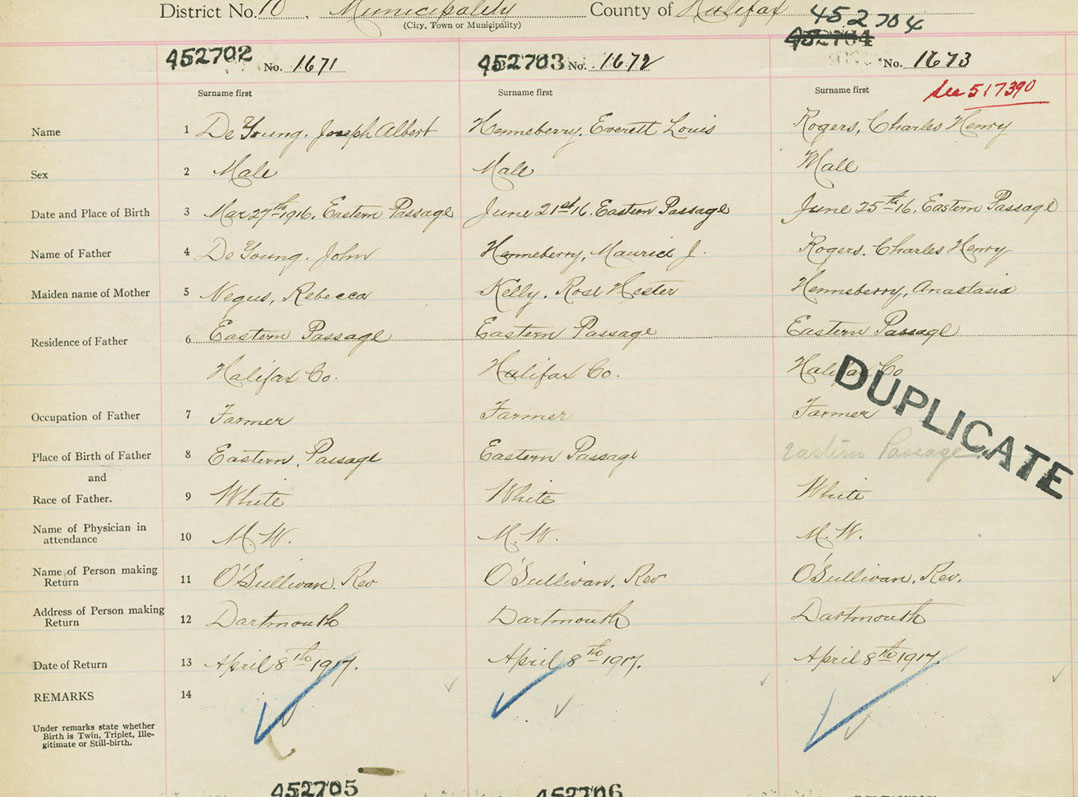 District No. 10, Municipality County of Halifax
(City, Town or Municipality)
452704
452702 No. 1671 452703 No. 1672 452704 No. 1673
Surname first Surname first Surname first See 517390
Name 1 De Young, Joseph Albert Henneberry, Everett Louis Rogers, Charles Henry
Sex 2 Male Male Male
Date and Place of Birth 3 Mar 27th 1916, Eastern Passage June 21st 16. Eastern Passage June 25th 16, Eastern Passage
Name of Father 4 De Young. John Henneberry, Maurice J. Rogers. Charles Henry
Maiden name of Mother 5 Negus, Rebecca Kelly. Rose Hester Henneberry, Anastasia
Residence of Father 6 Eastern Passage Eastern Passage Eastern Passage
Halifax Co. Halifax Co. Halifax Co
DUPLICATE
Occupation of Father 7 Farmer Farmer Farmer
Place of Birth of Father 8 Eastern Passage Eastern Passage Eastern Passage
and
Race of Father. 9 White White White
Name of Physician in
attendance 10 M. W. M. W. M. W.
Name of Person making
Return 11 O'Sullivan, Rev O'Sullivan, Rev O'Sullivan, Rev.
Address of Person making
Return 12 Dartmouth Dartmouth Dartmouth
Date of Return 13 April 8th 1917. April 8th 1917. April 8th 1917.
REMARKS 14
Under remarks state whether
Birth is Twin, Triplet, Ille-
gitimate or Still-birth.
452705 452706